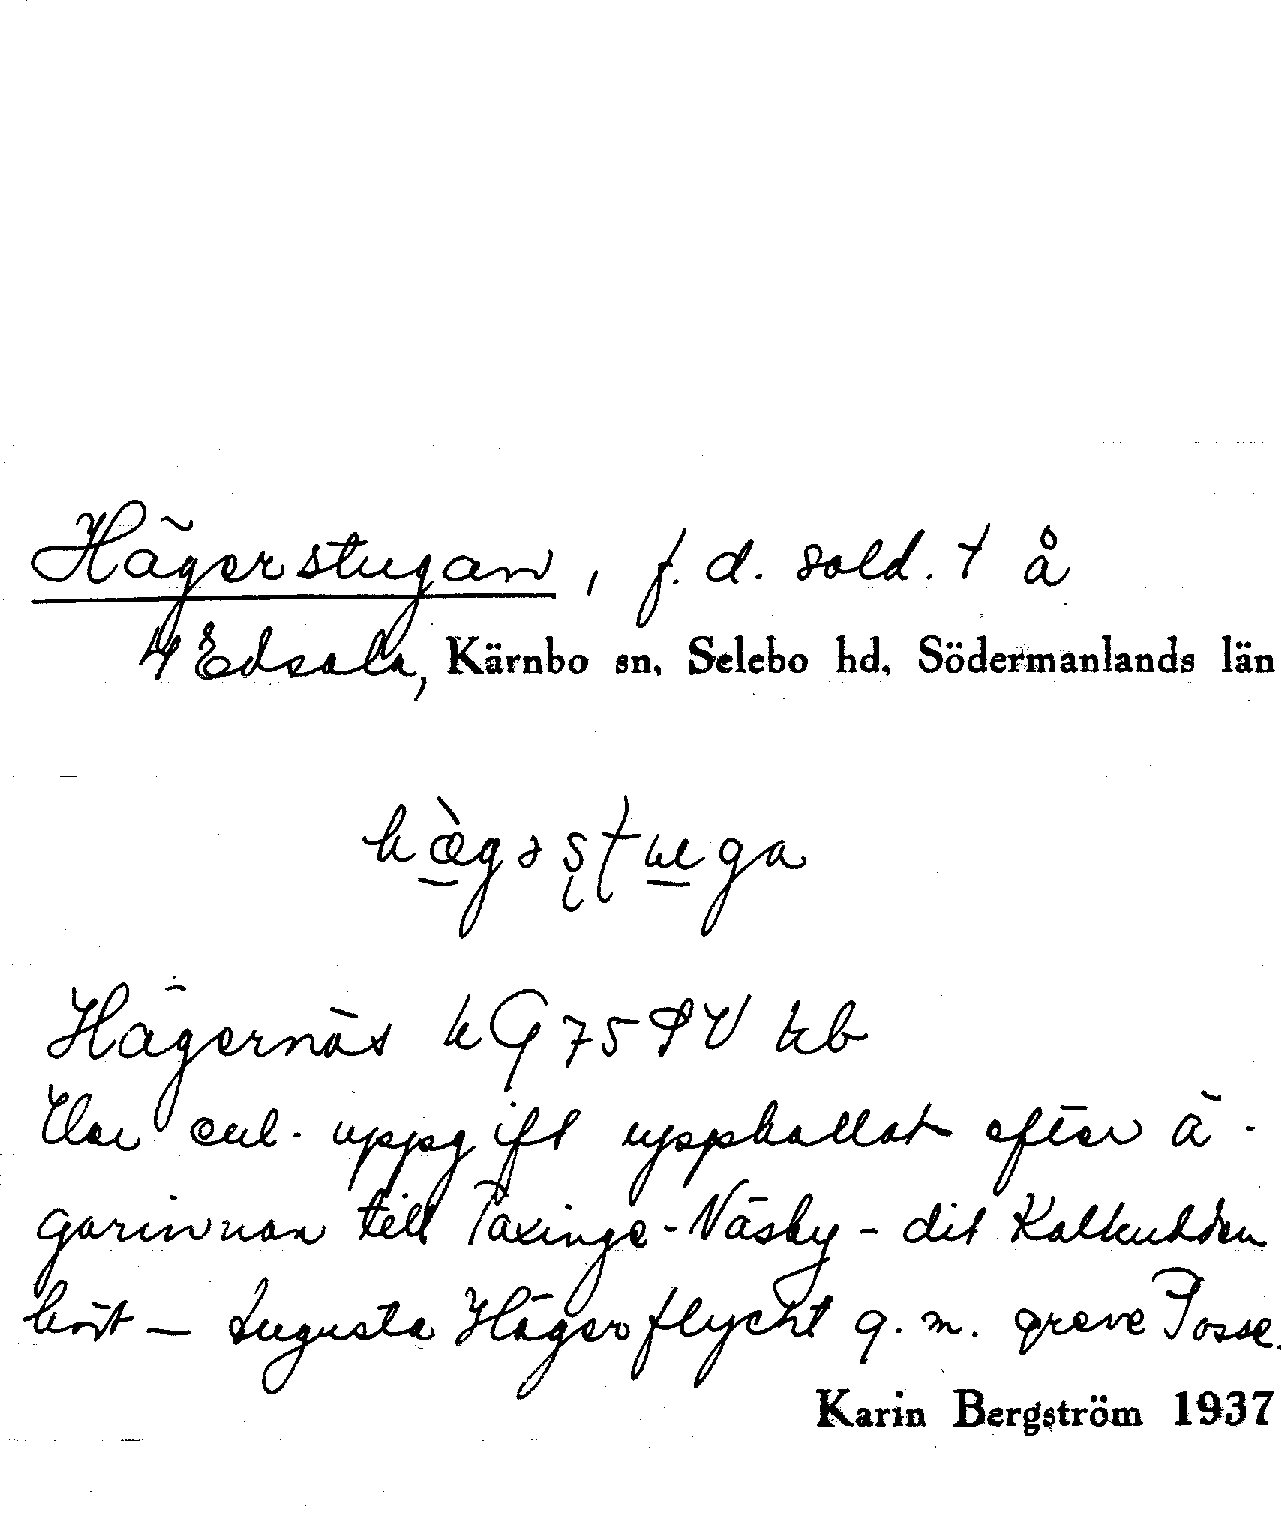 Hägerstugan, f.d. sold. t å
4 Edsala, Kärnbo sn, Selebo hd, Södermanlands län
hæ̀gəʂʈuga
Hägernäs kG 75 kb
Har enl. uppgift uppkallat efter ä-
garinnan till Taxinge-Näsby – dit Kalkudden
hört – Augusta Hägerflycht g.m. greve Posse.
Karin Bergström 1937